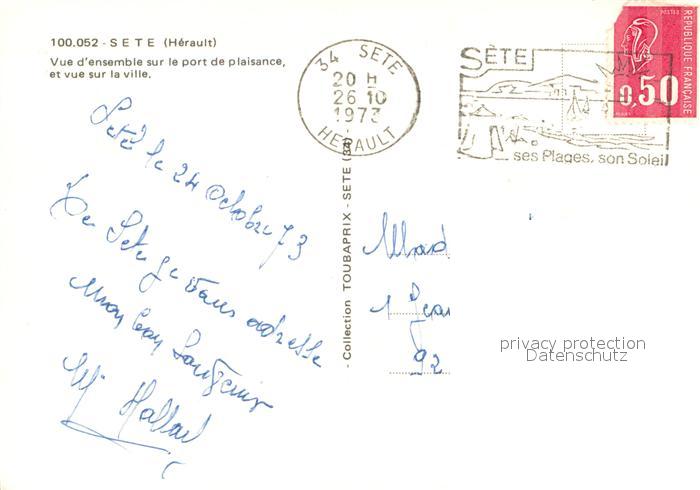 100.052 - SETE (Hérault)
Vue d'ensemble sur le port de plaisance,
et vue sur la ville.
34 SETE
20 H
26 10
1973
HERAULT
SÈTE
ses Plages, son Soleil
POSTES
RÉPUBLIQUE FRANÇAISE
0,50
Sète le 24 Octobre 73
De Sète je vous adresse
mon bon Souvenir
- Collection TOUBAPRIX - SETE (34) -
Mad
1
92
privacy protection
Datenschutz